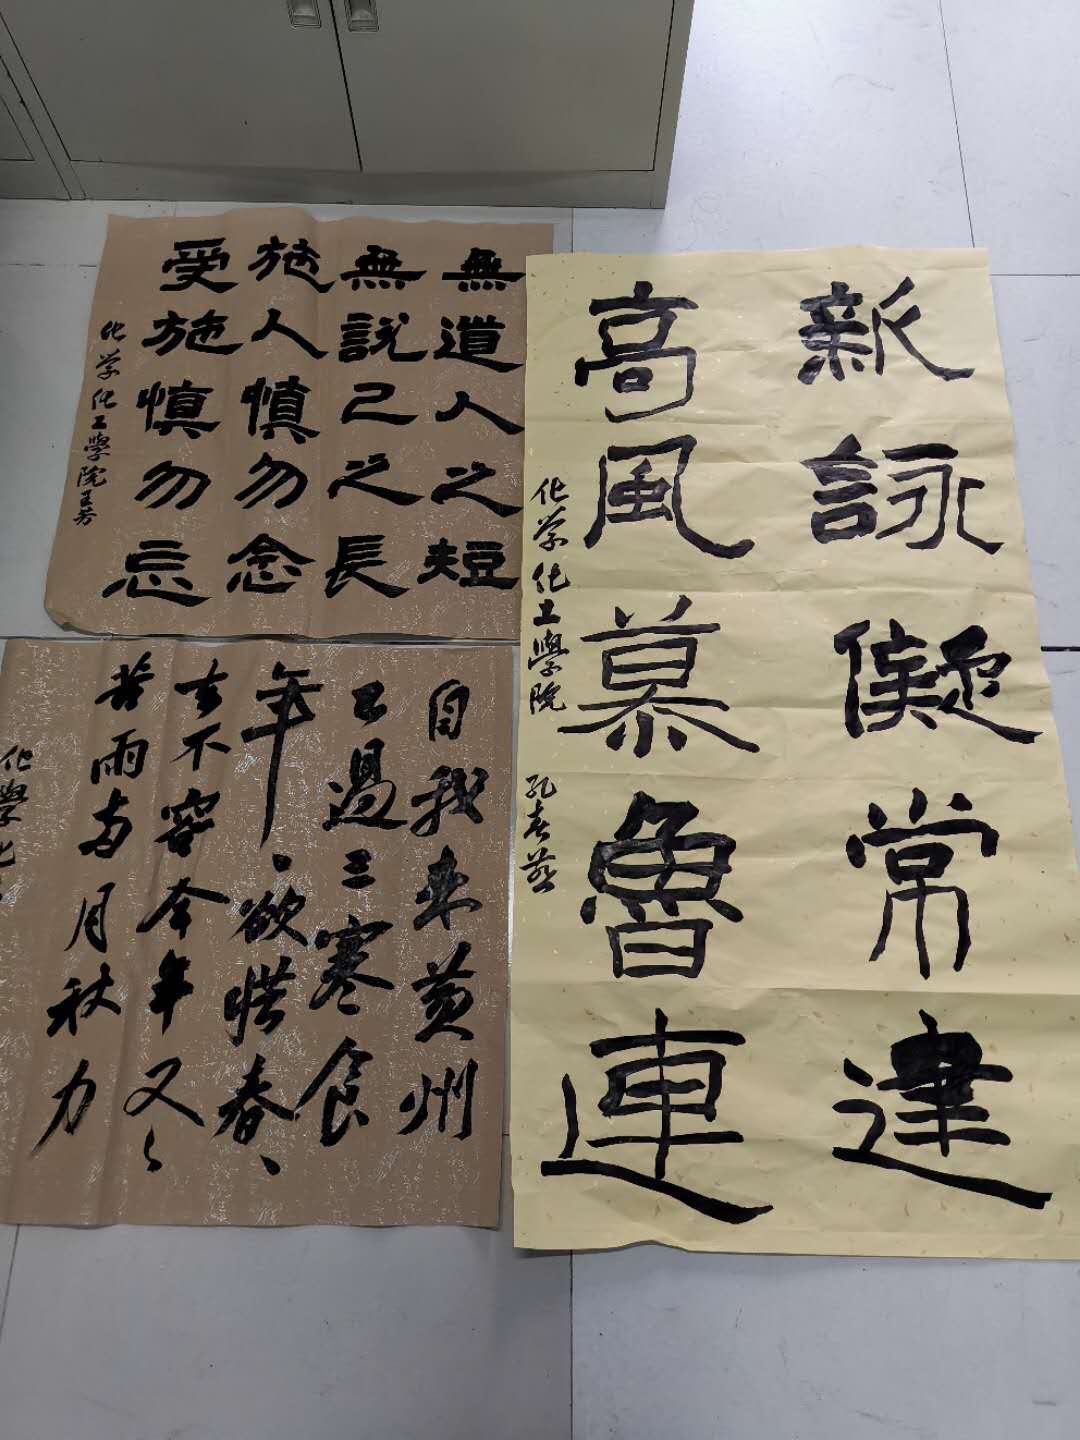 無道人之短
無説己之長
施人慎勿念
受施慎勿忘
化学化工學院王芳
新詠儗常建
高風慕魯連
化学化工學院 孔春燕
自我來黄州
已過三寒食
年、欲惜春、
去不容今年又、
苦雨兩月秋力
化學化